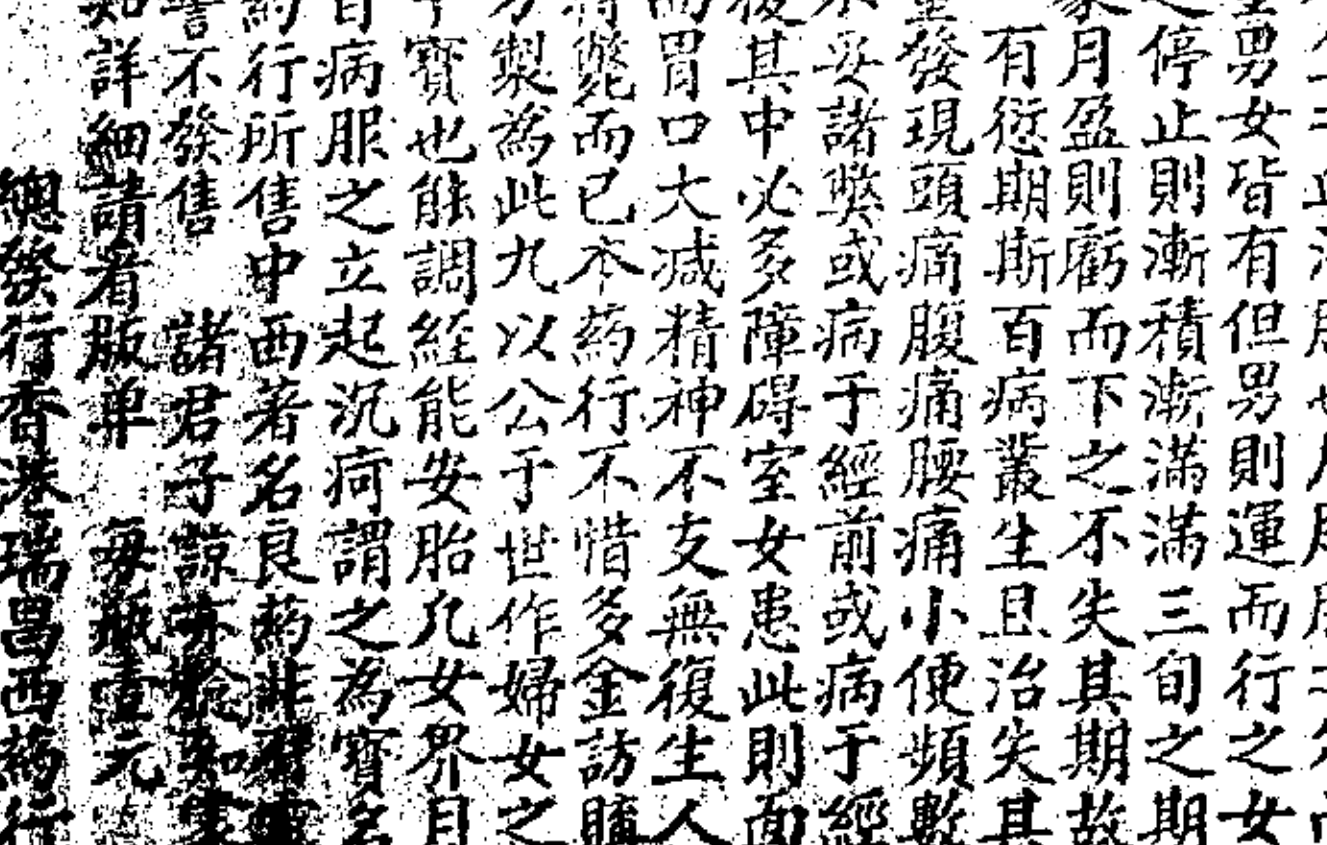 男女皆有但男則運而行之女
停止則漸積漸滿滿三旬之期
月盈則虧而下之不失其期故
有愆期斯百病叢生且治失其
發現頭痛腹痛腰痛小便頻數
妥諸獘或病于經前或病于經
其中必多障碍室女患此則面
胃口大减精神不支無復生人
斃而已本葯行不惜多金訪
製為此九以公于世作婦女之
寳也能調經能安胎凢女界月
病服之立起沉疴謂之為寳
葯行所售中西著名良葯非
不發售 諸君子諒亦
如詳細請看版单 每瓶壹元
總發行香港瑞昌西葯行